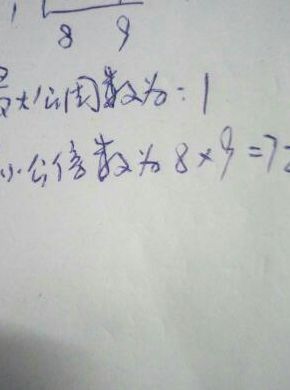 1
8 9
最大公因数为:1
小公倍数为8×9=72